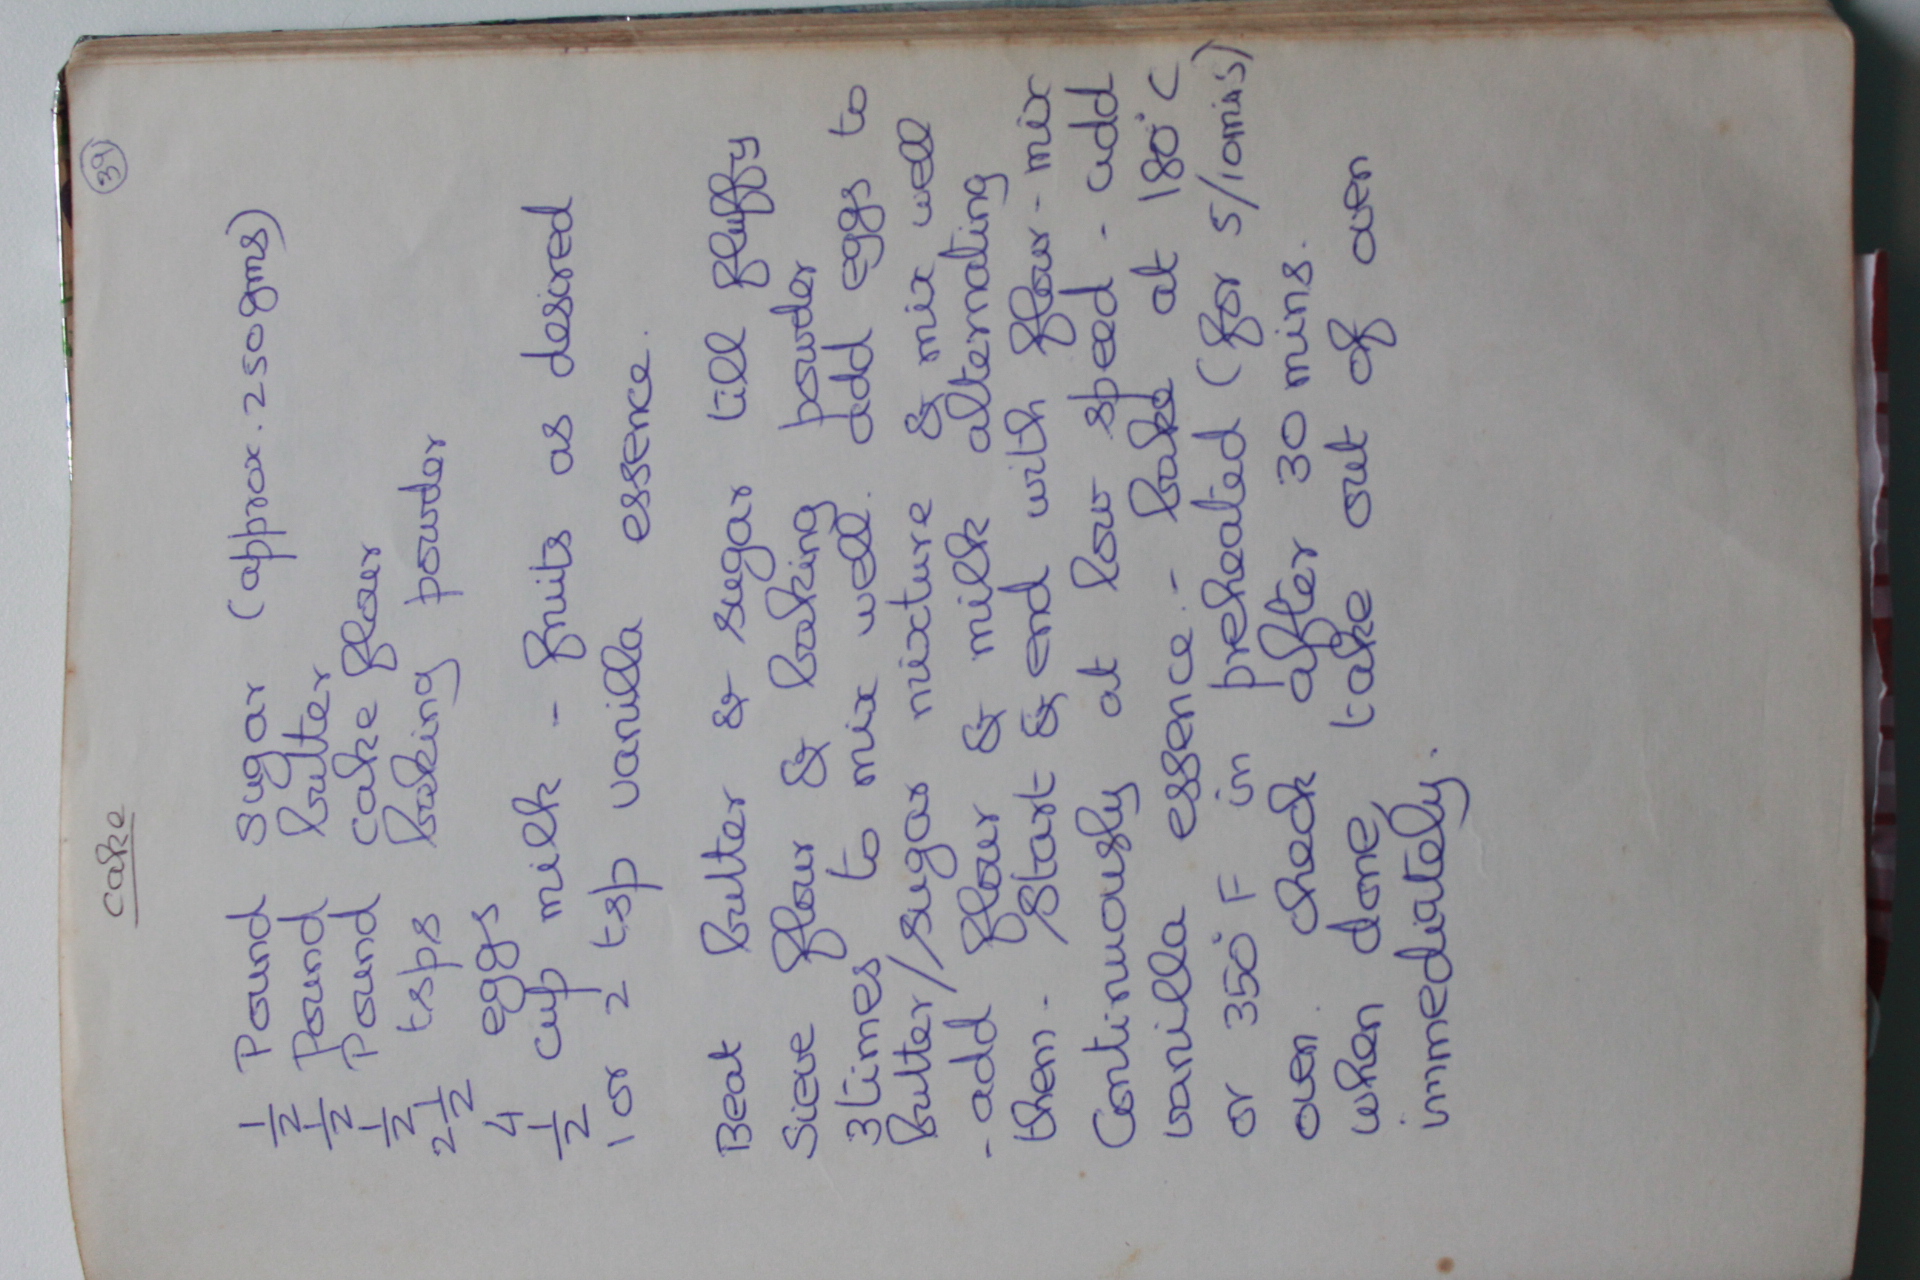 39
cake
1/2 Pound sugar (approx. 250gms)
1/2 Pound butter
1/2 Pound cake flour
2 1/2 tsps baking powder
4 eggs
1/2 cup milk - fruits as desired
1 or 2 tsp vanilla essence.
Beat butter & sugar till fluffy
Sieve flour & baking powder
3 times to mix well. add eggs to
butter/sugar mixture & mix well
- add flour & milk alternating
them - Start & end with flour - mix
Continuously at low speed - add
vanilla essence - bake at 180° C
or 350° F in preheated (for 5/10mins)
oven. check after 30 mins.
when done, take out of oven
immediately.